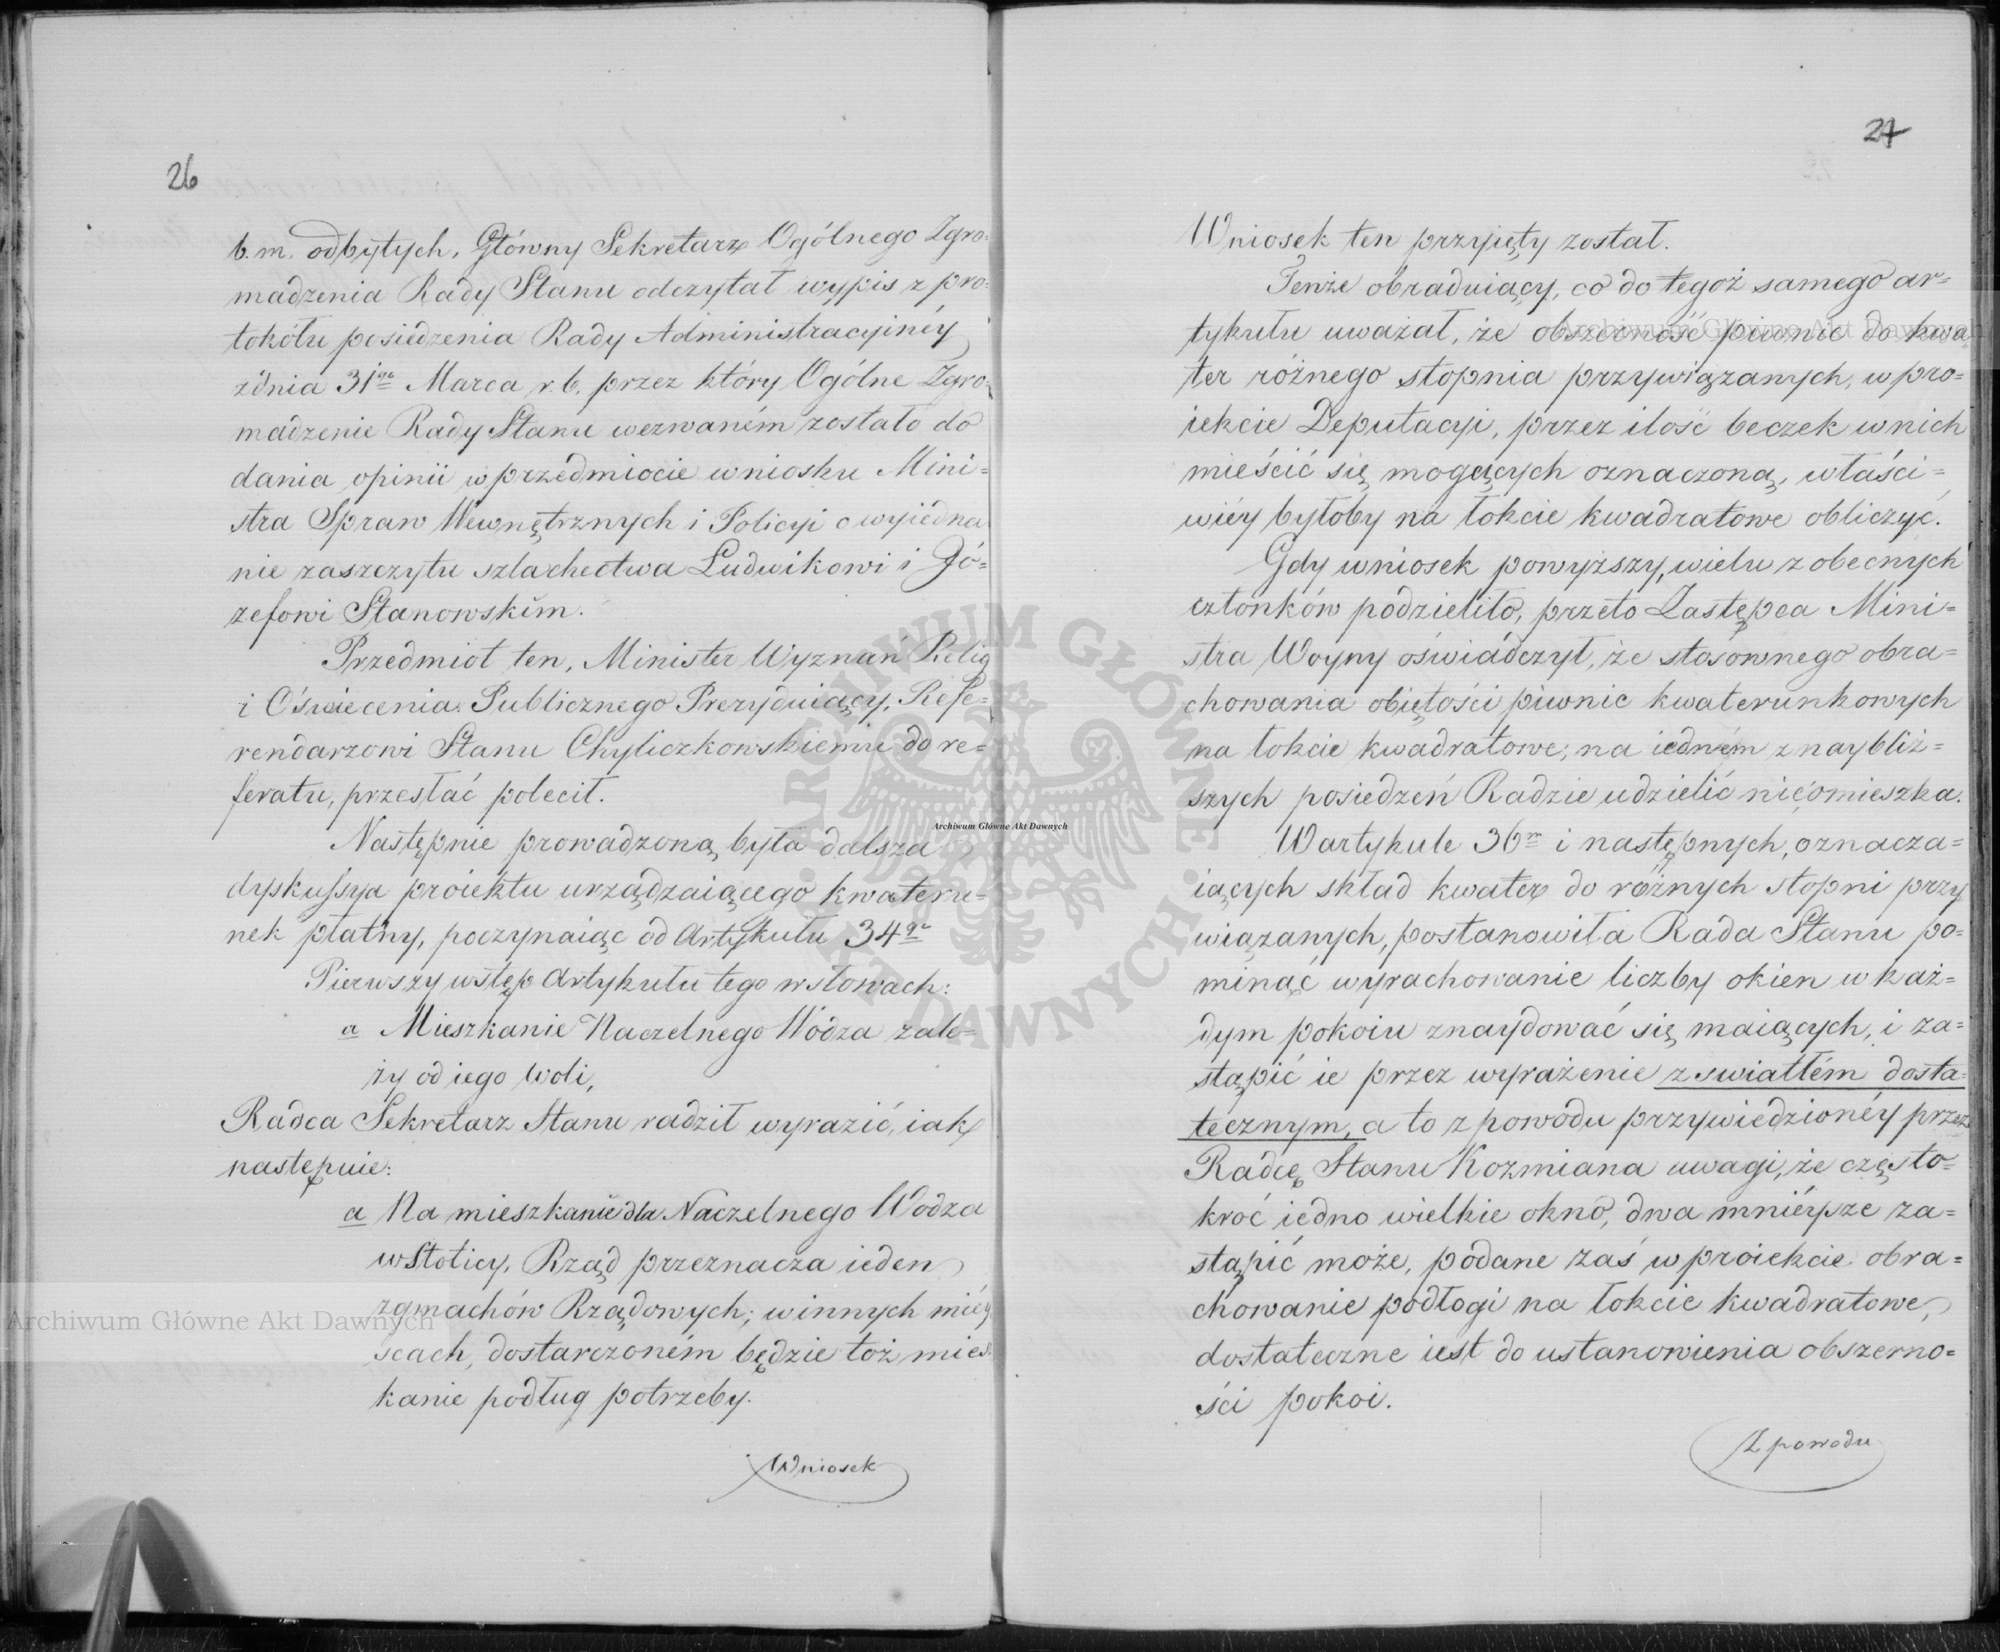 26
b. m. odbytych, Główny Sekretarz Ogólnego Zgro-
madzenia Rady Stanu odczytał wypis z pro-
tokółu posiedzenia Rady Administracyinéy
z dnia 31go Marca r. b. przez który Ogólne Zgro-
madzenie Rady Stanu wezwaném zostało do
dania opinii w przedmiocie wniosku Mini-
stra Spraw Wewnętrznych i Policyi o wyiedna
nie zaszczytu szlachectwa Ludwikowi i Jó-
zefowi Stanowskim.
Przedmiot ten, Minister Wyznań Relig
i Oświecenia Publicznego Prezyduiący, Refe-
rendarzowi Stanu Chyliczkowskiemu do re-
feratu, przesłać polecił.
Następnie prowadzoną była dalsza
dyskussya proiektu urządzaiącego kwateru-
nek płatny, poczynaiąc od Artykułu 34go
Pierwszy wstęp Artykułu tego w słowach:
a Mieszkanie Naczelnego Wodza zale-
ży od iego woli,
Radca Sekretarz Stanu radził wyrazić, iak
następuie:
a Na mieszkanie dla Naczelnego Wodza
w Stolicy, Rząd przeznacza ieden
z gmachów Rządowych; w innych miéy
scach, dostarczoném będzie toż mies-
kanie podług potrzeby.
Wniosek
27
Wniosek ten przyięty został.
Tenże obraduiący, co do tegoż samego ar-
tykułu uważał, że obszerność piwnic do kwa
ter różnego stopnia przywiązanych, w pro-
iekcie Deputacyi, przez ilość beczek w nich
mieścić się mogących oznaczona, właści-
wiéy byłoby na łokcie kwadratowe obliczyć.
Gdy wniosek powyższy, wielu z obecnych
członków podzieliło, przeto Zastępca Mini-
stra Woyny oświadczył, że stosownego obra-
chowania obiętości piwnic kwaterunkowych
na łokcie kwadratowe; na iedném z naybliż-
szych posiedzeń Radzie udzielić nieomieszka.
W artykule 36m i następnych, oznacza-
iących skład kwater do różnych stopni przy
wiązanych, postanowiła Rada Stanu po-
minąć wyrachowanie liczby okien w każ-
dym pokoiu znaydować się maiących, i za-
stąpić ie przez wyrażenie z swiatłém dosta-
tecznym, a to z powodu przywiedzionéy przez
Radcę Stanu Kozmiana uwagi, że często-
kroć iedno wielkie okno, dwa mniéysze za-
stąpić może, podane zaś w proiekcie obra-
chowanie podłogi na łokcie kwadratowe,
dostateczne iest do ustanowienia obszerno-
ści pokoi.
Z powodu
Archiwum Główne Akt Dawnych
Archiwum Główne Akt Dawnych
Archiwum Główne Akt Dawnych
ARCHIWUM GŁÓWNE AKT DAWNYCH